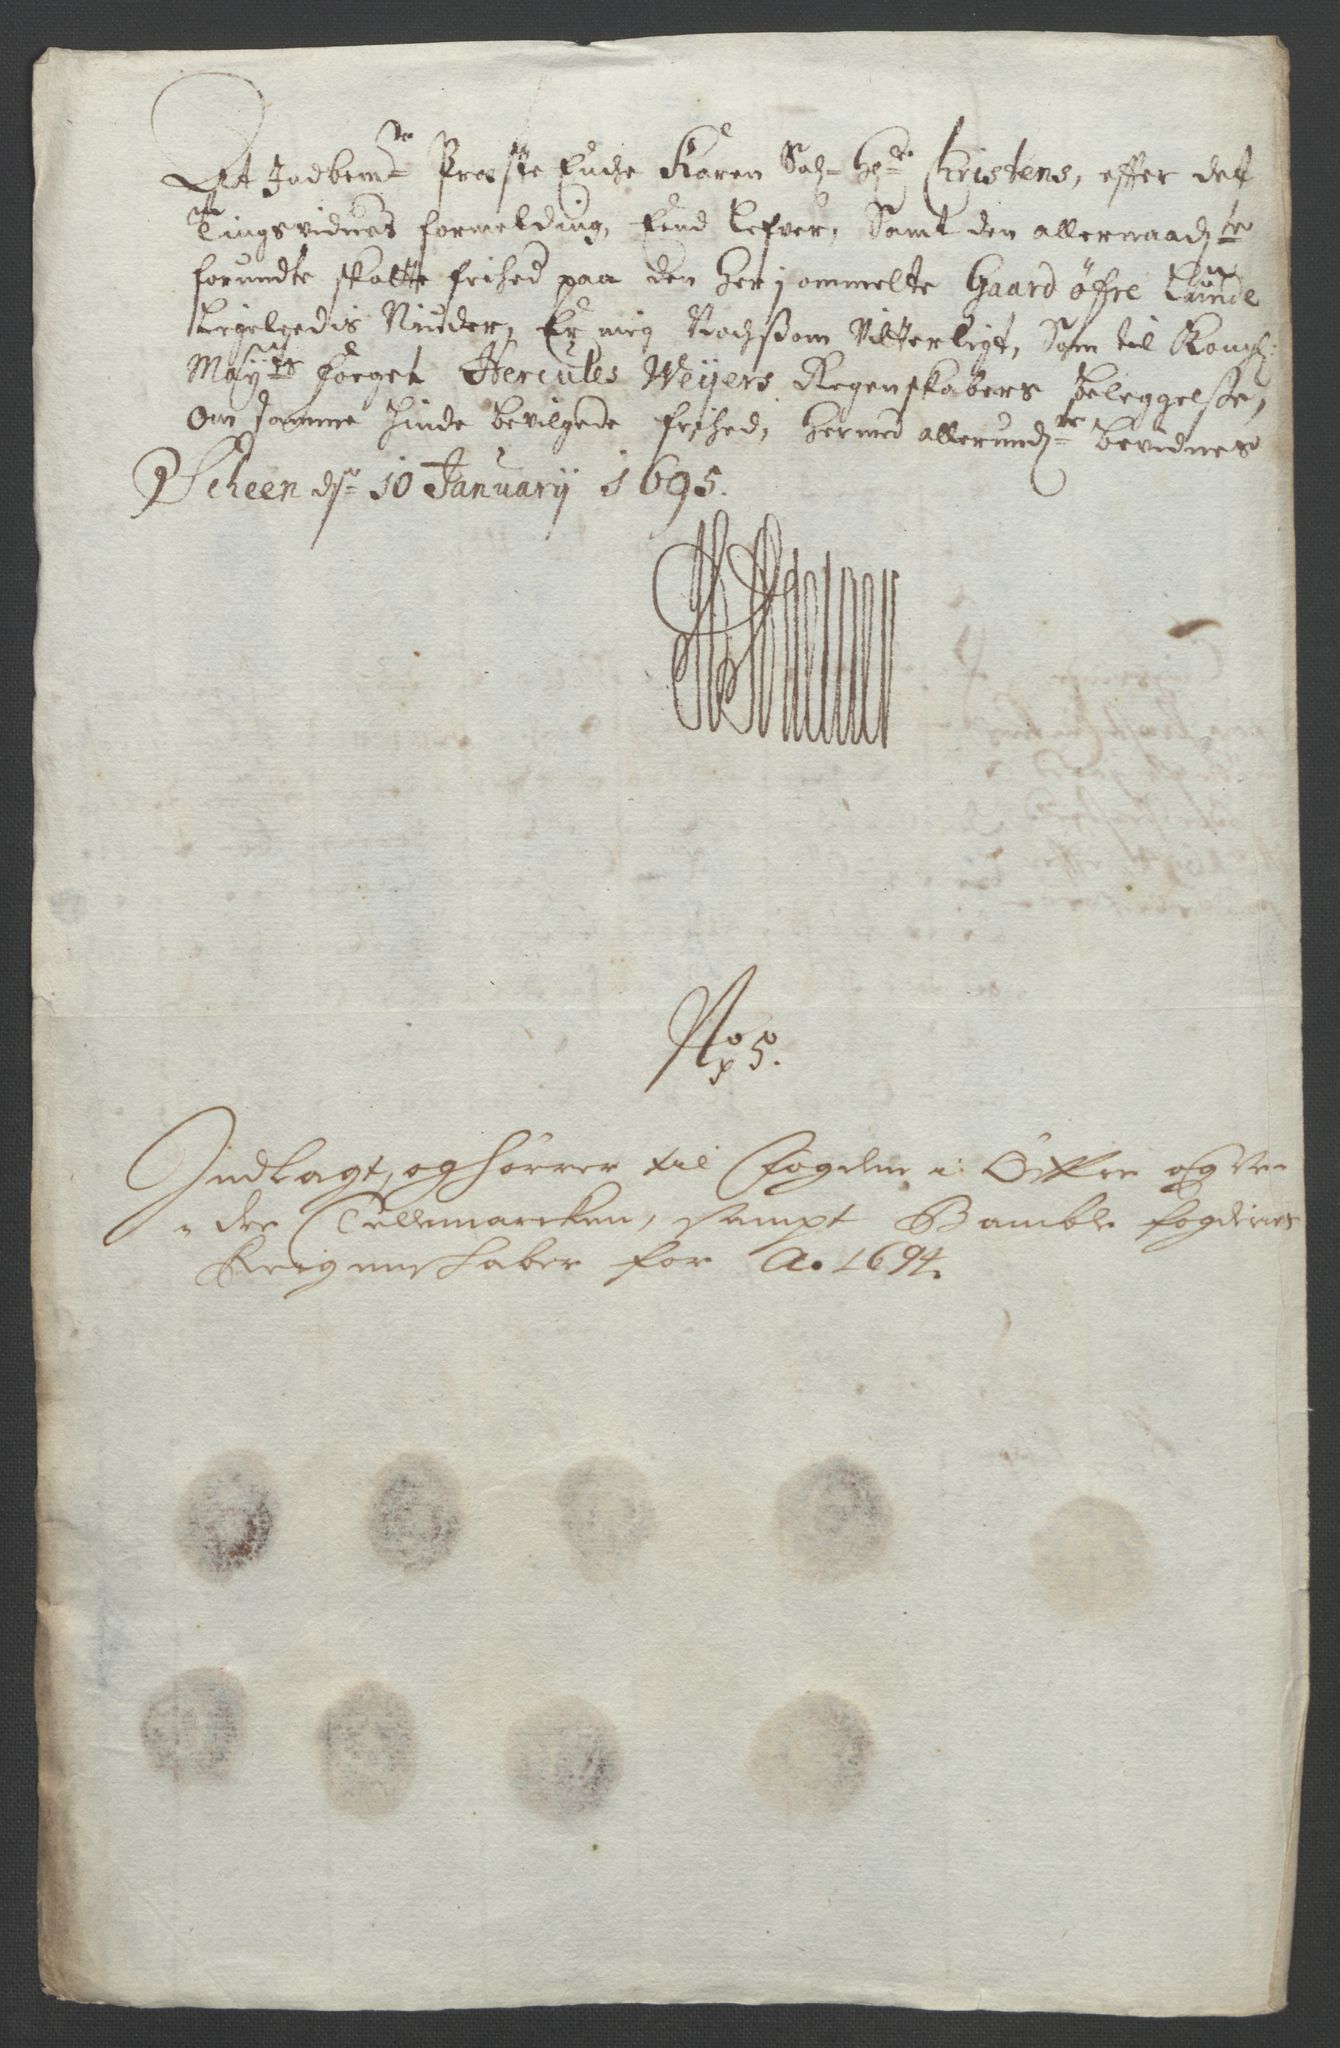 At Jndbemte Præste Enche Karen Sal: Hr: Christens, effter det
Tingsvidnes formelding, End lefver, Samt den allernaadste
forundte skatte frihed paa den Herj ommelte Gaard öfre Lunde
Ligeledis Niuder, Er mig Nochsom Vitterligt, Som til Kongl:
Mayts foeget Hercules Weyers Regenskabers beleggelsse,
Om samme hinde bevilgede frihed, hermed allerundte bevidnes
Scheen ds: 10 January 1695.
No 5.
Indlagt, og hörrer till fogdens i Öffre og Ne-
dre Tellemarcken, sampt Bamble fogderies
Reigenskaber for Ao 1694.